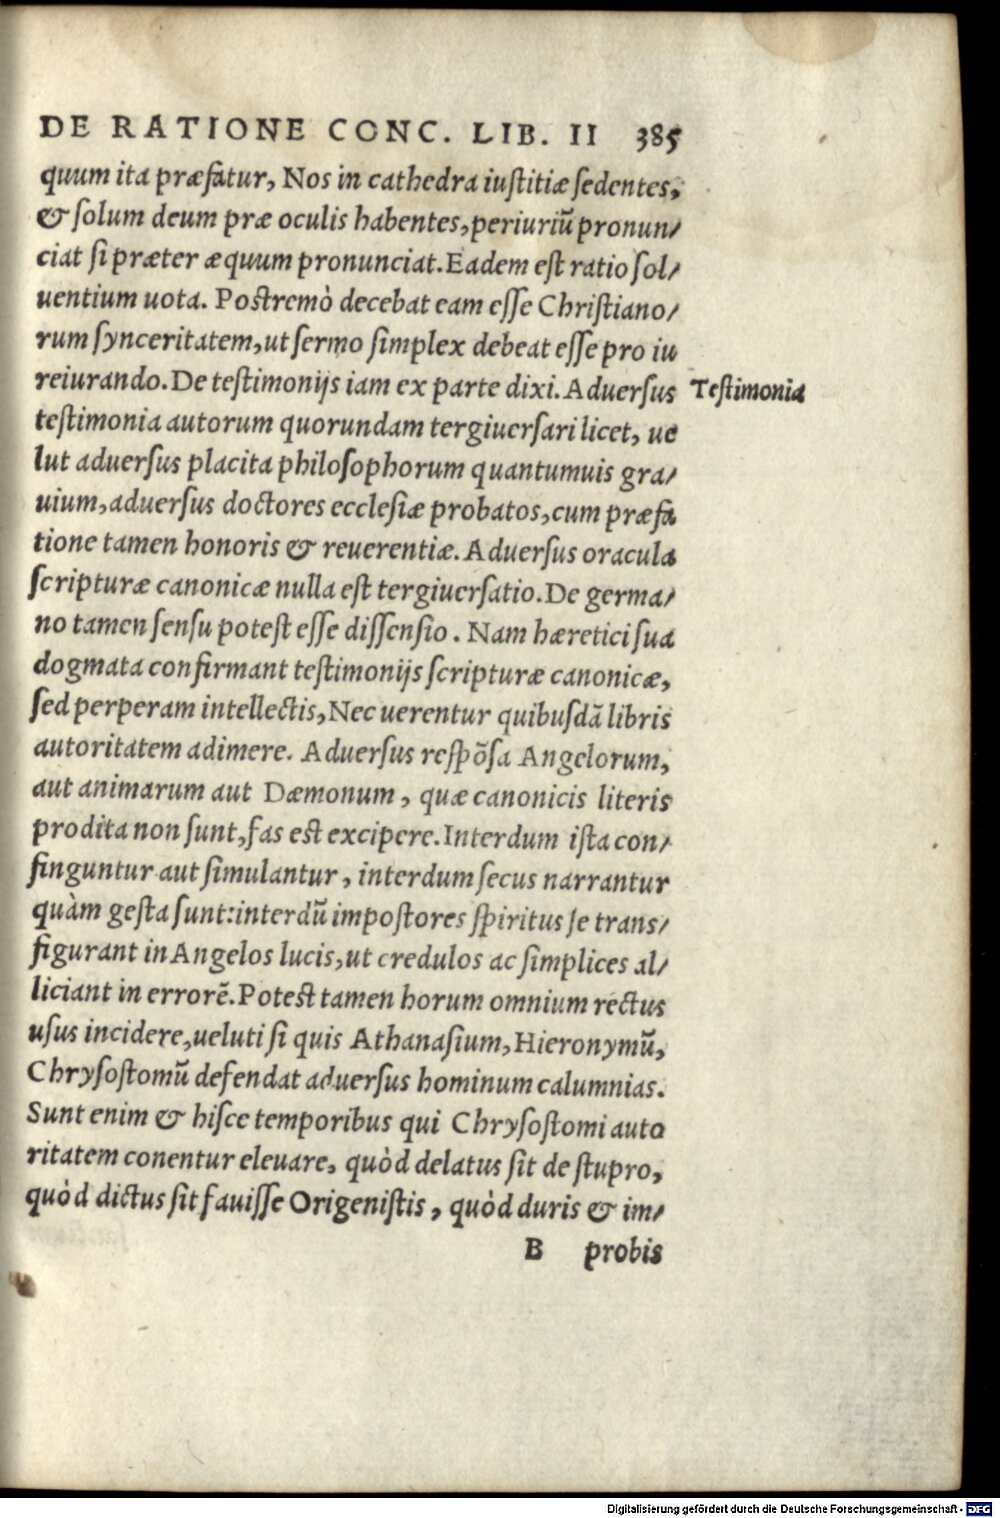 DE RATIONE CONC. LIB. II 385
quum ita præfatur, Nos in cathedra iuſtitiæ ſedentes,
& ſolum deum præ oculis habentes, periuriũ pronun/
ciat ſi præter æquum pronunciat. Eadem eſt ratio ſol/
uentium uota. Poſtremò decebat eam eſſe Chriſtiano/
rum ſynceritatem, ut ſermo ſimplex debeat eſſe pro iu
reiurando. De teſtimonijs iam ex parte dixi. Aduerſus
Teſtimonia
teſtimonia autorum quorundam tergiuerſari licet, ue
lut aduerſus placita philoſophorum quantumuis gra/
uium, aduerſus doctores eccleſiæ probatos, cum præfa
tione tamen honoris & reuerentiæ. Aduerſus oracula
ſcripturæ canonicæ nulla eſt tergiuerſatio. De germa/
no tamen ſenſu poteſt eſſe diſſenſio. Nam hæretici ſua
dogmata confirmant teſtimonijs ſcripturæ canonicæ,
ſed perperam intellectis, Nec uerentur quibuſdã libris
autoritatem adimere. Aduerſus reſpõſa Angelorum,
aut animarum aut Dæmonum, quæ canonicis literis
prodita non ſunt, fas eſt excipere. Interdum iſta con/
finguntur aut ſimulantur, interdum ſecus narrantur
quàm geſta ſunt: interdũ impoſtores ſpiritus ſe trans/
figurant in Angelos lucis, ut credulos ac ſimplices al/
liciant in errorẽ. Poteſt tamen horum omnium rectus
uſus incidere, ueluti ſi quis Athanaſium, Hieronymũ,
Chryſoſtomũ defendat aduerſus hominum calumnias.
Sunt enim & hiſce temporibus qui Chryſoſtomi auto
ritatem conentur eleuare, quòd delatus ſit de ſtupro,
quòd dictus ſit fauiſſe Origeniſtis, quòd duris & im/
B probis
Digitalisierung gefördert durch die Deutsche Forschungsgemeinschaft - DFG